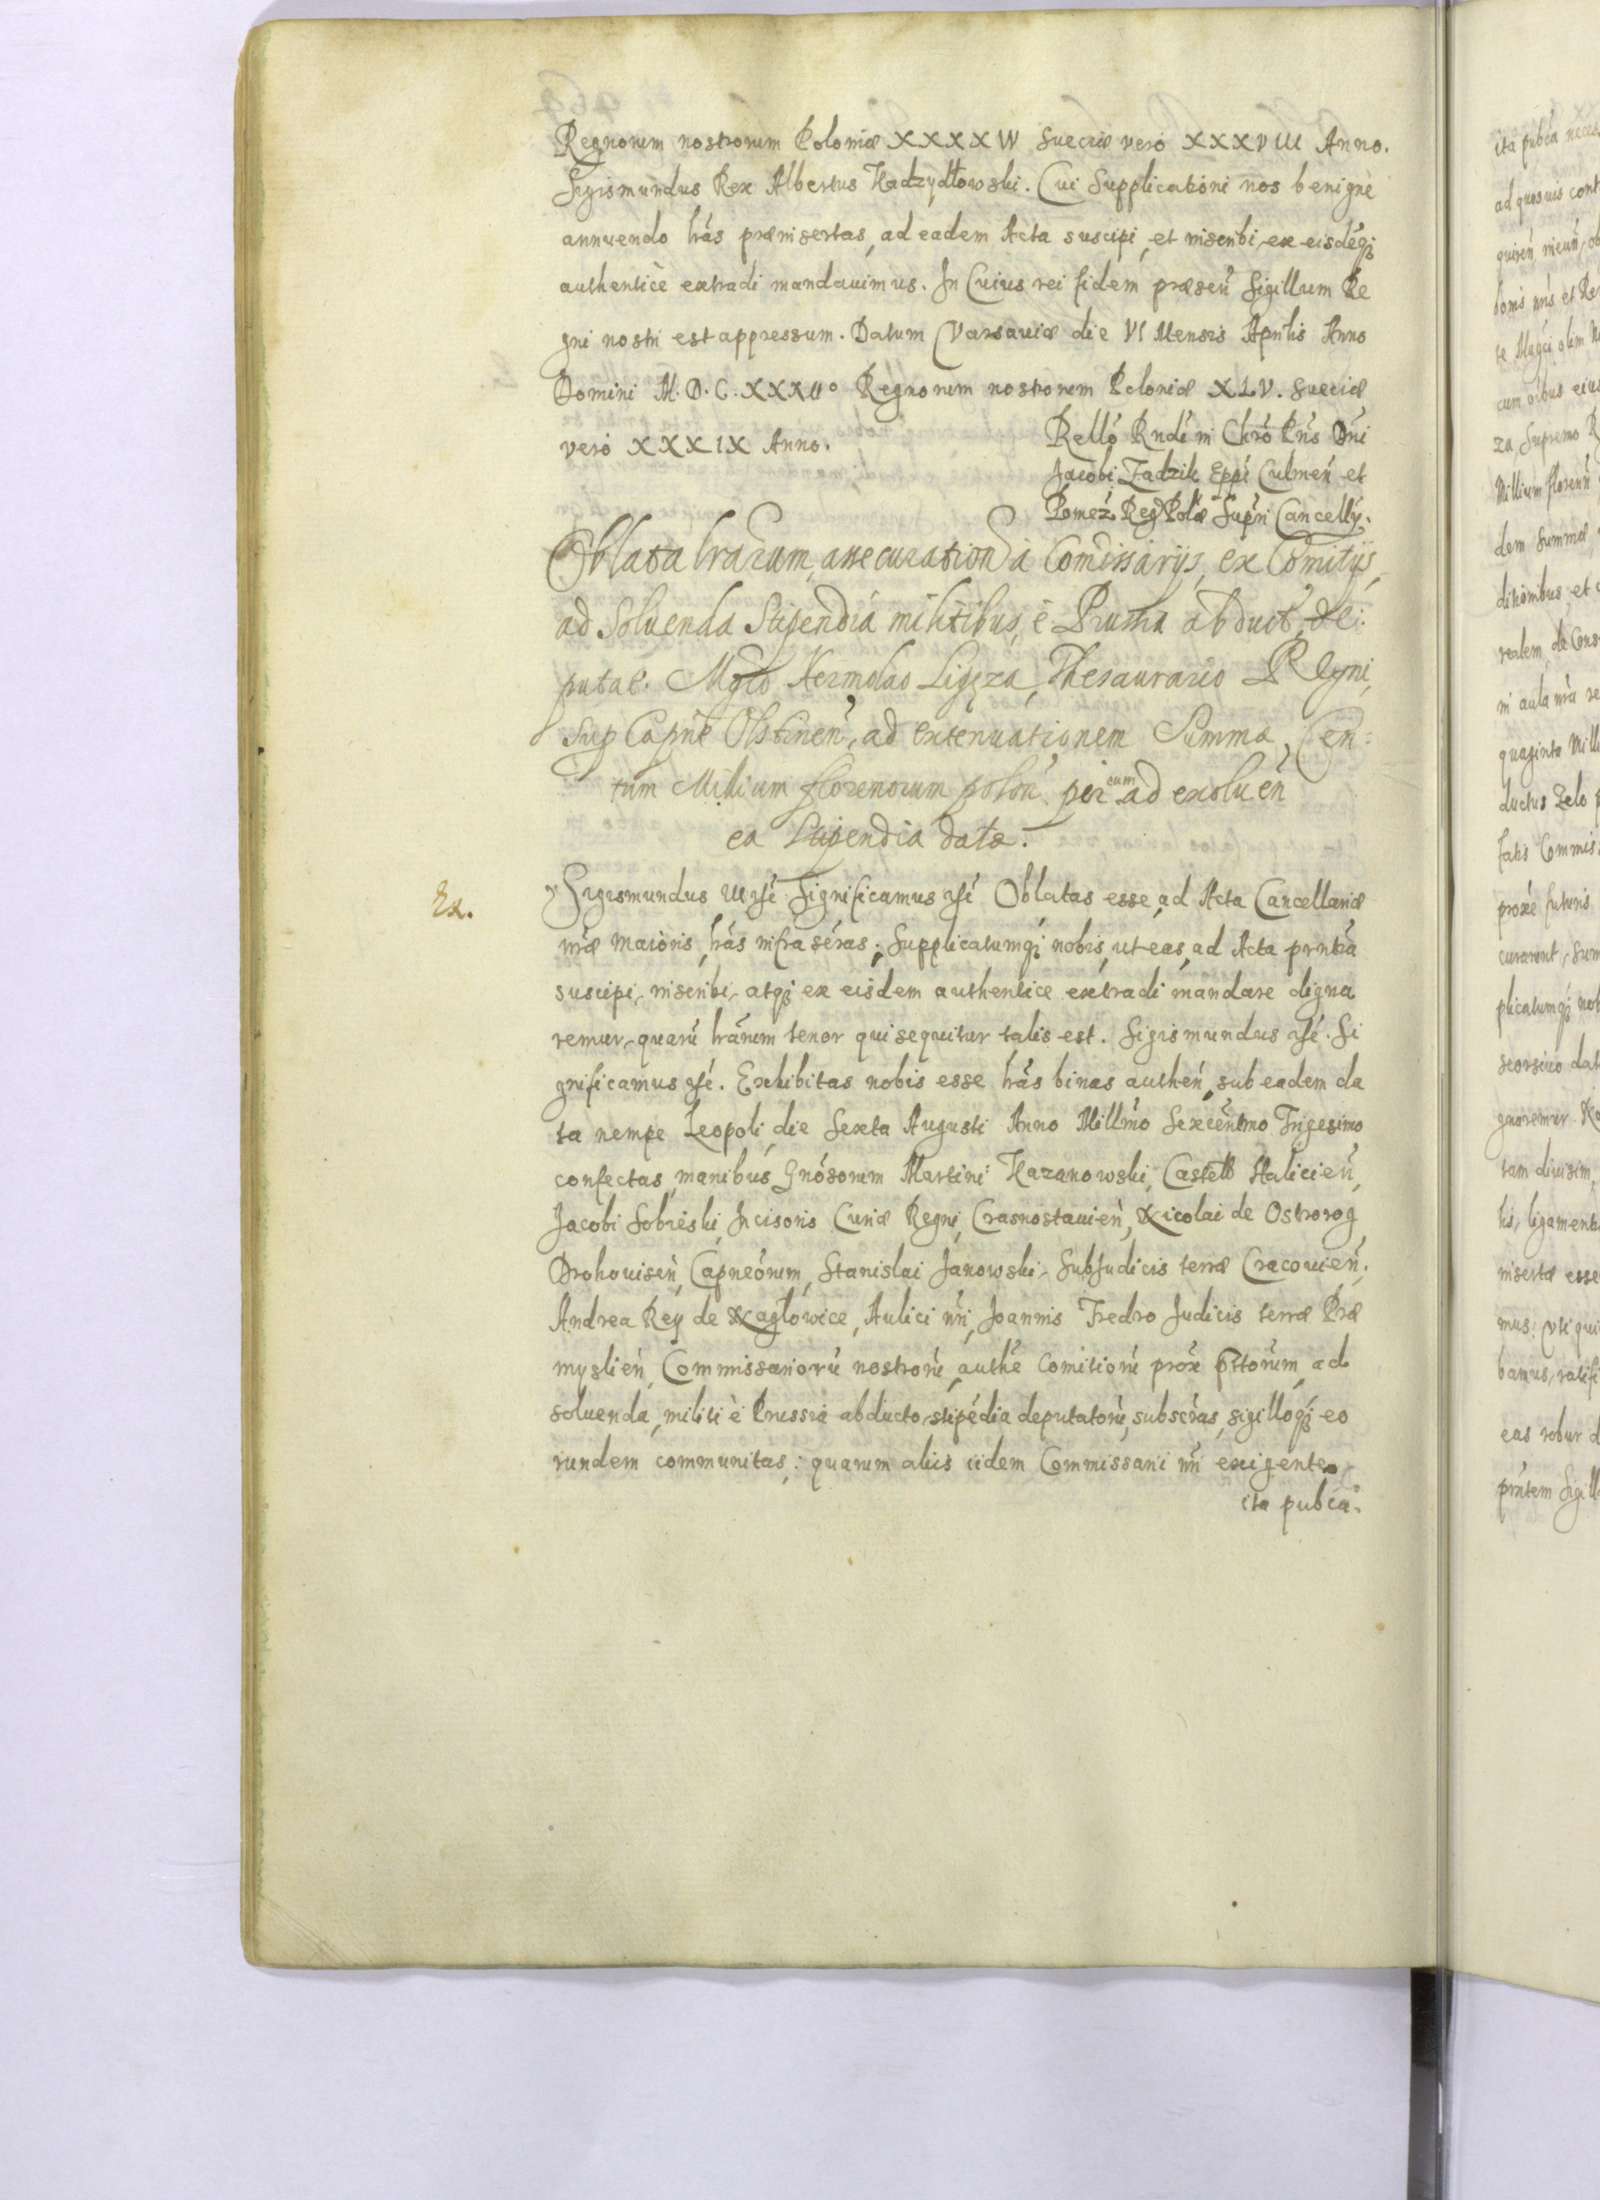 Regnorum nostrorum Poloniæ XXXXIV Sueciæ vero XXXVIII Anno.
Sigismundus Rex Albertus Kadzydłowski. Cui Supplicationi nos benigné
annuendo lr̃as præinsertas, ad eadem Acta suscipi, et inscribi, ex eisdẽq;
authenticè extradi mandavimus. In Cuius rei fidem præseñ Sigillum Re
gni nostri est appressum. Datum Varsaviæ die VI Mensis Aprilis Anno
Domini M.D.C.XXXIIo Regnorum nostrorum Poloniæ XLV. Sueciæ
vero XXXIX Anno.
Rello Rndi in Chro Pris Dni
Jacobi Zadzik Eppi Culmeñ et
Pomez. Reg Polæ Supri Cancellÿ.
Oblata lrarum, assecuration à Comissarijs, ex Comitijs,
ad Soluenda Stipendia militibus, è Prussia abduct, de:
putat. Mgco Hermolao Ligęza, Thesaurario Regni,
Sup Capne Olstineñ, ad extenuationem Summæ, Cen:
tum Milium florenorum poloñ. per eum ad exolueñ
ea Stipendia datæ.
Ex.
Sigismundus III rsé Significamus rsé Oblatas esse, ad Acta Cancellariæ
nr̃æ maioris, lr̃as infra scras; Supplicatumq; nobis, ut eas, ad Acta prntia
suscipi, inscribi, atq; ex eisdem authentice extradi mandare digna
remur, quarũ lrarum tenor qui sequitur talis est. Sigismundus rsé. Si
gnificamus rsé. Exhibitas nobis esse lr̃as binas autheñ, sub eadem da
ta nempe Leopoli, die Sexta Augusti Anno Millmo Sexcentmo Trigesimo
confectas, manibus Gnosorum Martini Kazanowski, Castell Halicieñ,
Jacobi Sobieski, Incisoris Curiæ Regni, Crasnostavieñ, Nicolai de Ostrorog
Drohoviseñ, Capneorum, Stanislai Janowski, SubJudicis terræ Cracovieñ,
Andrea Rey de Nagłowice, Aulici nri, Joannis Fredro Judicis terræ Præ
myslieñ, Commissariorũ nostrorũ, authẽ Comitiorũ prox pttorum, ad
soluenda, militi è Prussia abducto, stipẽdia deputatorũ, subscras, sigilloq; eo
rundem communitas,: quarum aliis iidem Commissarii nri exigente
ita pubca: